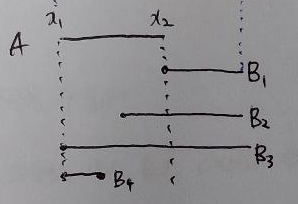 x₁ x₂
A
B₁
B₂
B₃
B₄